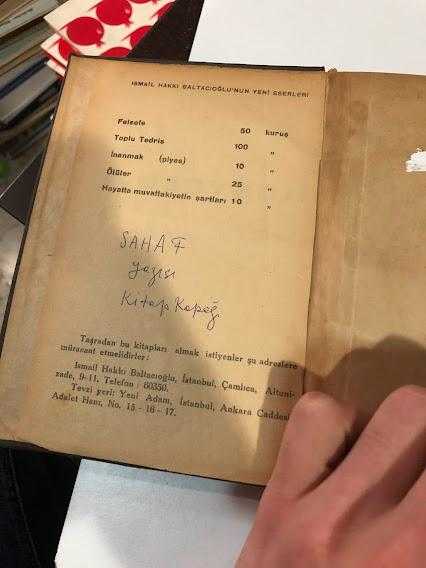 İSMAİL HAKKI BALTACIOĞLU'NUN YENİ ESERLERİ
Felsefe 50 kuruş
Toplu Tedris 100 „
İnanmak (piyes) 10 „
Ölüler „ 25 „
Hayatta muvaffakiyetin şartları 10 „
SAHAF
yazısı
Kitap Kapağı
Taşradan bu kitapları almak istiyenler şu adreslere
müracaat etmelidirler:
İsmail Hakkı Baltacıoğlu, İstanbul, Çamlıca, Altuni-
zade, 9-11. Telefon : 60350.
Tevzi yeri: Yeni Adam, İstanbul, Ankara Caddesi,
Adalet Hanı, No. 15 - 16 - 17.